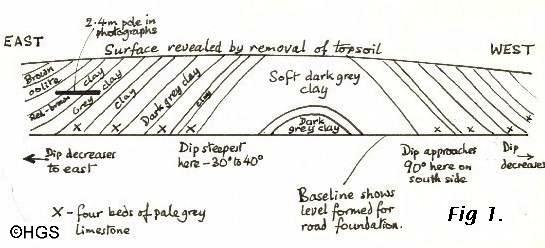 2.4m pole in
photographs
EAST
Surface revealed by removal of topsoil
WEST
Brown
oolite
clay
Red-brown
Grey clay
clay
Dark grey clay
clay
Soft dark grey
clay
Dark
grey clay
x x x x
x x x x
Dip decreases
to east
Dip steepest
here - 30° to 40°
Dip approaches
90° here on
south side
Dip
decreases
X - four beds of pale grey
limestone
Baseline shows
level formed for
road foundation.
Fig 1.
©HGS